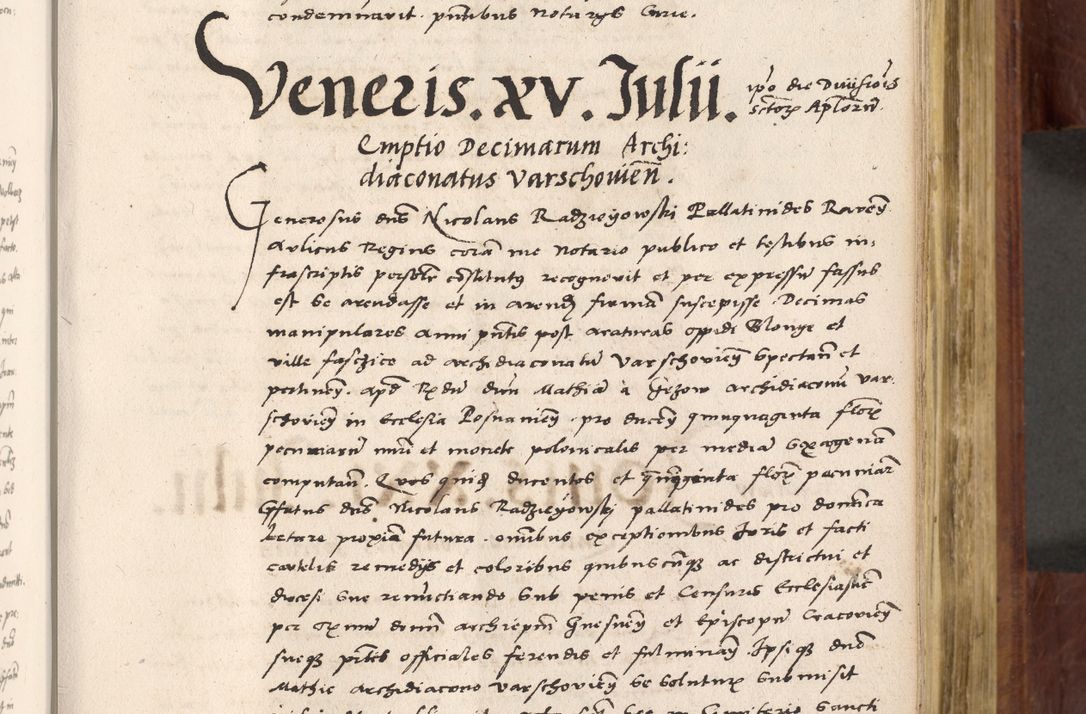 condemnavit. pntibus Notarys Curie.
Veneris. xv. Iulii. ipo die Divisiois
sctorz Aplorum.
Emptio Decimarum Archi:
diaconatus Varschovien.
Generosus dns Nicolaus Radzieyowski Pallatinides Raven
Aulicus Regius coram me Notario publico et testibus in,
frascriptis personlr constitutus recognovit et per expressum fassus
est se arendasse et in arendam firmam suscepisse. Decimas
manipulares anni pntis post araturas oppidi Blonye et
ville faschico ad archidiaconatum Varschovien spectan et
pertinen. apd Rdum dnm Mathiam a Jezow archidiaconum var,
schovien in Ecclesia Posnanien. pro ducen quinquaginta florz
pecuniarum numi et monete polonicalis per mediam sexagenam
computan. Quos quidem ducentos et quinquaginta florz pecuniarum
pfatus dns Nicolaus Radzieyowsky pallatinides pro dominica
Letare proxiam futura. omnibus exceptionibus Juris et facti
cautelis remedys et coloribus quibuscunqz ac districtui et
diocesi sue renunctiando sub penis et Censuris Ecclesiasticis
per Rxmum domin archiepm Gnesnen et Episcopum Cracovien
suosqz pntes officiales ferendis et fulminan Ipsiqz dno
Mathie archidiacono varschovien se soluturz submisit